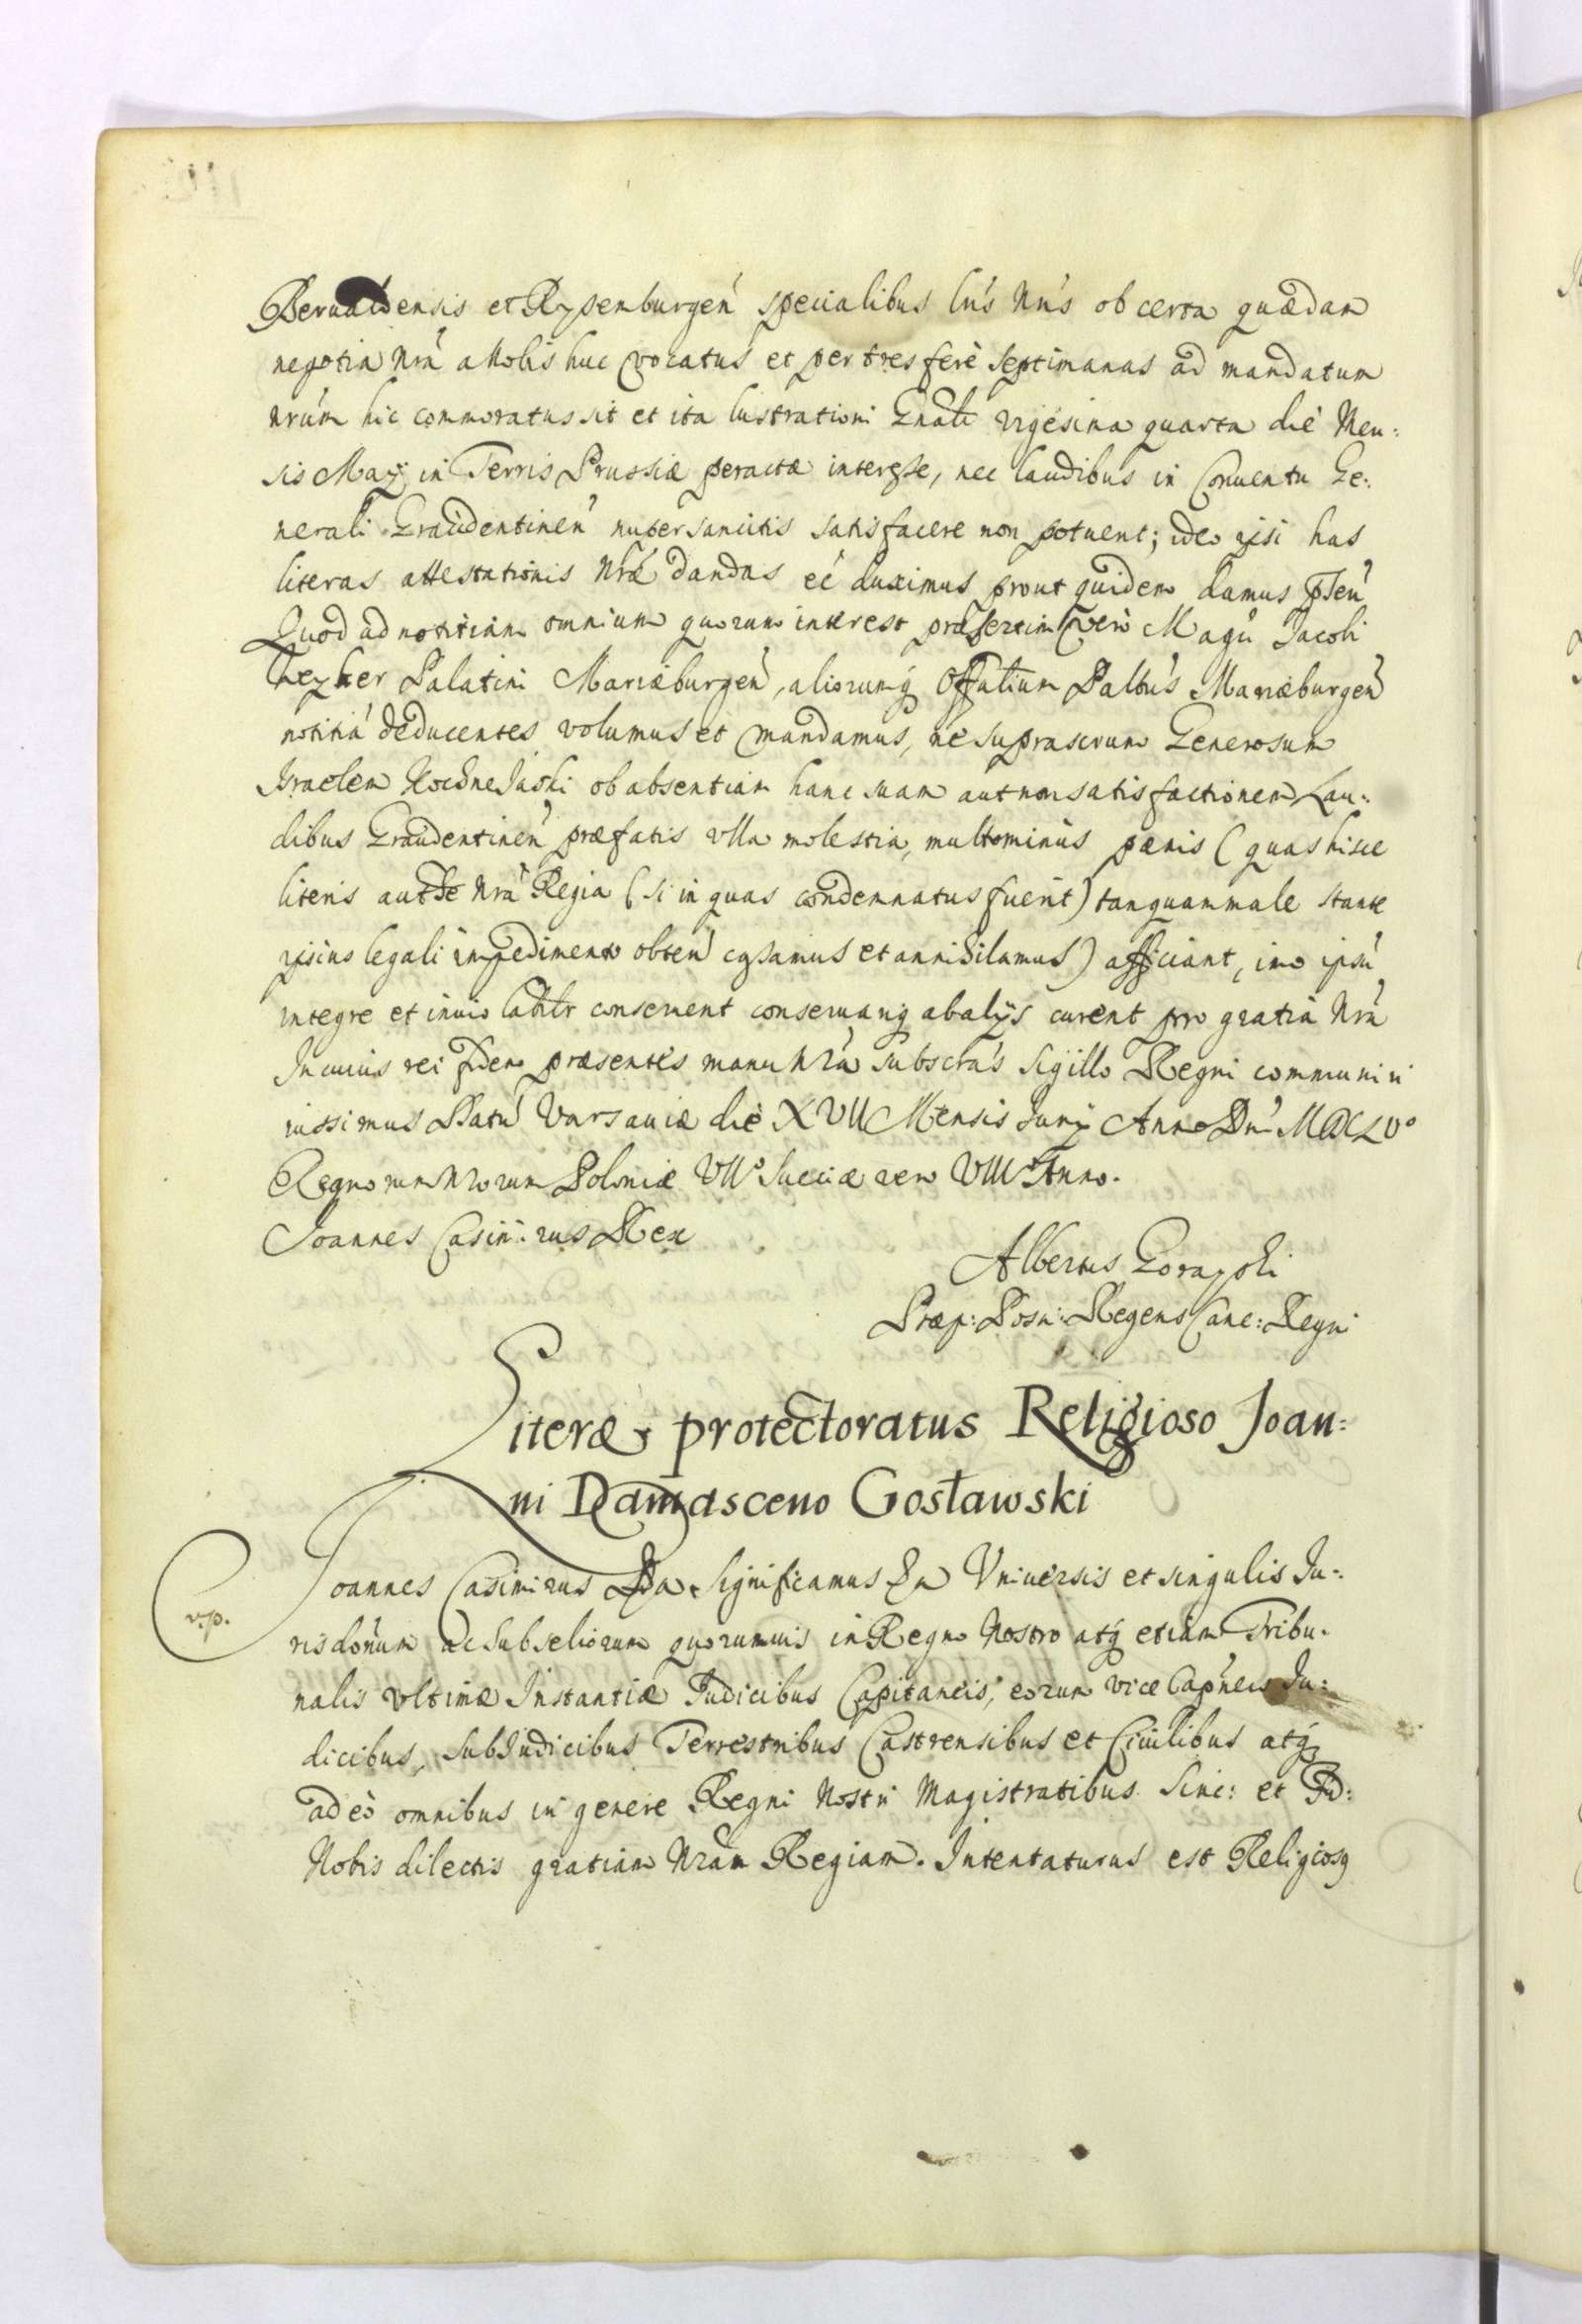 Berualdensis et Rysenburgeń specialibus lrís Nrís ob certa quædam
negotia Nrá a Nobis huc vocatus et per tres ferè septimanas ad mandatum
nrúm hic commoratus sit et ita lustrationi Gnali vigesima quarta die Men:
sis Maÿ in Terris Prussiæ peractæ interesse, nec laudibus in Conuentu Ge:
nerali Graudentineń nuper sancitis satisfacere non potuerit; ideo ipsi has
literas attestationis Nræ dandas eé duximus prout quidem damus pseń
Quod ad notitiam omnium quorum interest præsertim verò Magń Jacobi
Weyher Palatini Mariæburgeń, aliorumq Offalium Palbús Mariæburgeń
notitiá deducentes volumus et mandamus, né suprascrum Generosum
Israelem ob absentiam hanc suam aut non satisfactionem Lau:
dibus Graudentineń præfatis vlla molestia, multominùs pænis (quas hisce
literis autthe Nrá Regia (si in quas condemnatus fuerit) tanquam male stante
ipsius legali impedimento obteń cassamus et annihilamus) afficiant, imo ipsú
integre et inuiolabiltr conseruent conseruariq ab alijs curent pro gratia Nrá
In cuius rei fidem præsentes manu Nrá subscrás sigillo Regni communiri
iussimus Datú Varsauiæ diè XVII Mensis Junÿ Anno Dńi MDCLVº
Regnorum Nrorum Poloniæ VIIº Sueciæ vero VIIIº Anno.
Joannes Casimirus Rex
Albertus Gorayski
Præp: Posn: Regens Canc: Regni
Literæ protectoratus Religioso Joan:
ni Damasceno Gosławski
v.p.
Joannes Casimirus Significamus Vniuersis et singulis Ju:
risdonúm ac Subseliorum quorumuis in Regno Nostro atq etiam Tribu:
nalis vltimæ Instantiæ Judicibus Capitaneis, eorum vice Capneis Ju:
dicibus, SubJudicibus Terrestribus Castrensibus et Ciuilibus atq
adeò omnibus in genere Regni Nostri Magistratibus Sinc: et Fid:
Nobis dilectis gratiam Nram Regiam. Intentaturus est Religiosq